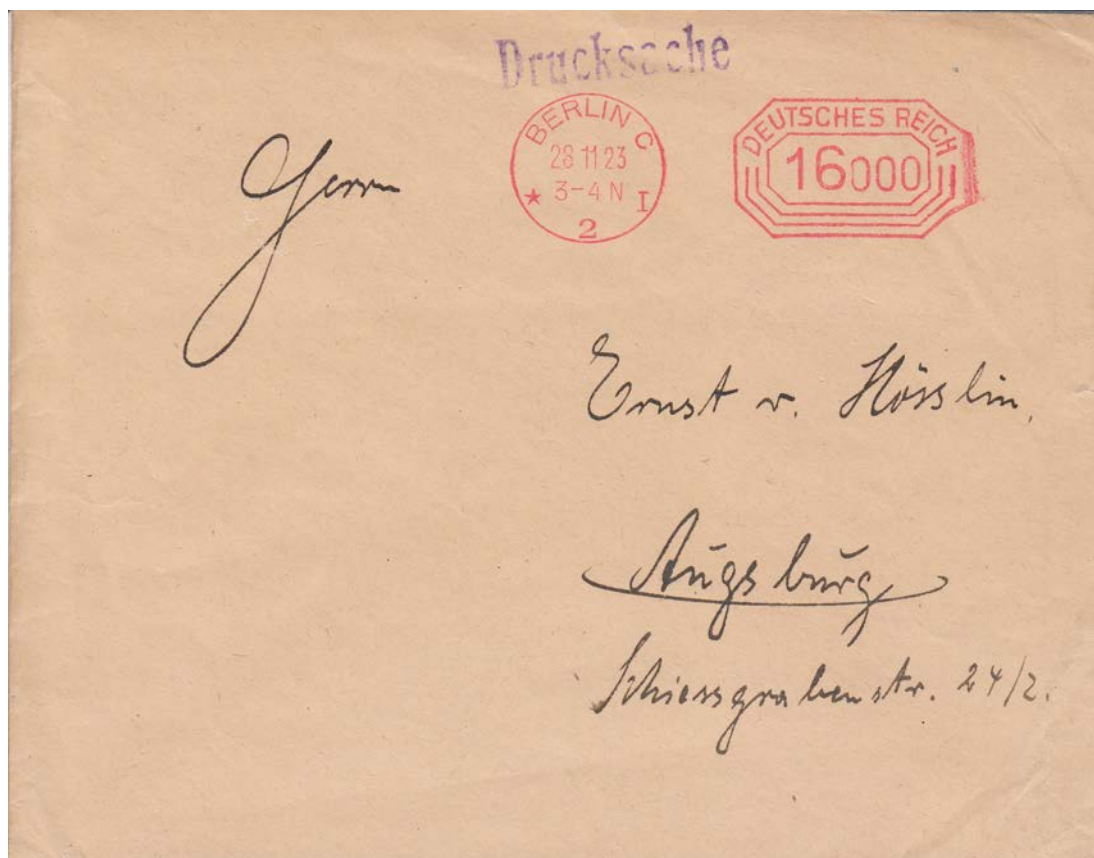 Drucksache
BERLIN C
28 11 23
3-4 N
★ I
2
DEUTSCHES REICH
16000
Herrn
Ernst v. Hösslin.
Augsburg
Schiessgrabenstr. 24/2.